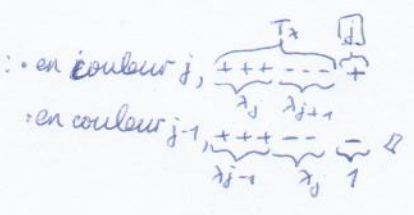 Tλ [j]
: • en couleur j, + + + - - - +
λj λj+1
: en couleur j-1, + + + - - -
λj-1 λj 1